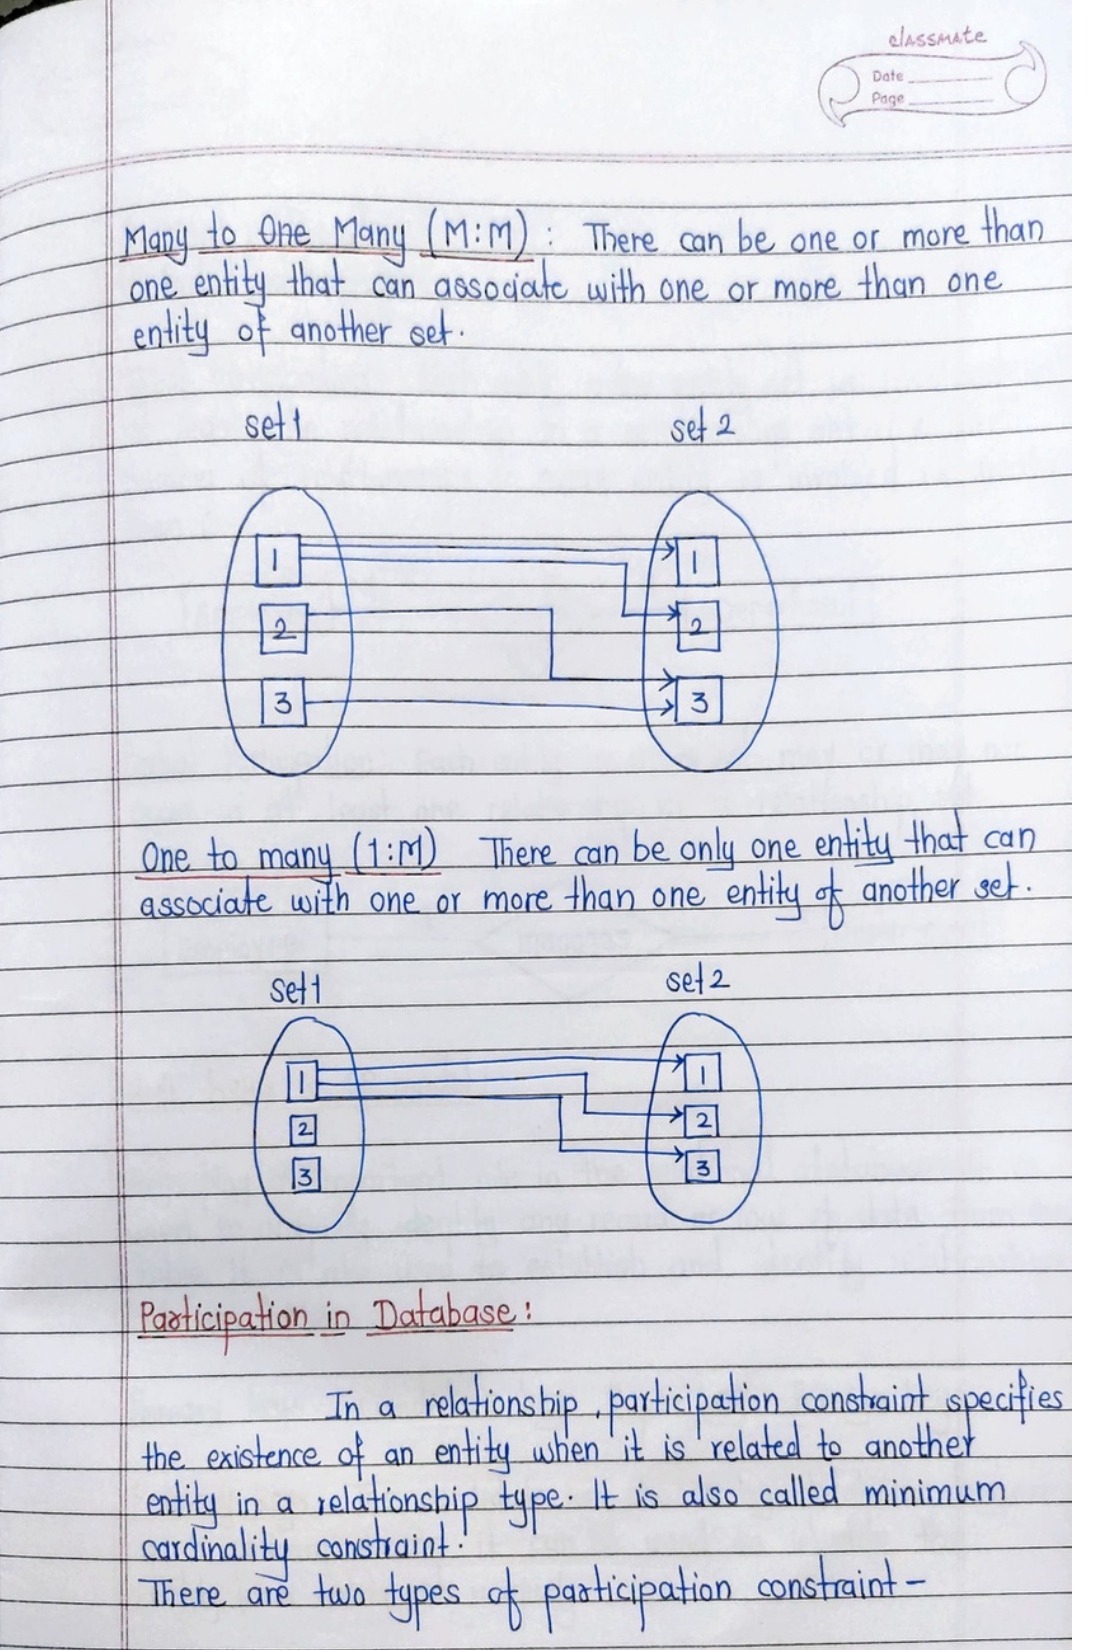 classmate
Date
Page
Many to One Many (M:M) : There can be one or more than
one entity that can associate with one or more than one
entity of another set.
set 1 set 2
1 1
2 2
3 3
One to many (1:M) There can be only one entity that can
associate with one or more than one entity of another set.
set 1 set 2
1 1
2 2
3 3
Participation in Database :
In a relationship, participation constraint specifies
the existence of an entity when it is related to another
entity in a relationship type. It is also called minimum
cardinality constraint.
There are two types of participation constraint -